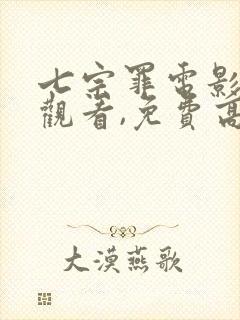 七宗罪電影
觀看,免費高
大漠燕歌